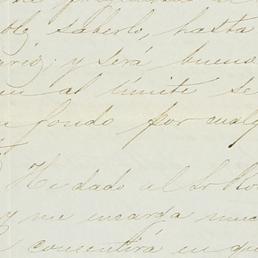 saberlo, hasta
y será bueno
al límite se
fondo por
He dado al Sr
y me encarga
consentirá en que